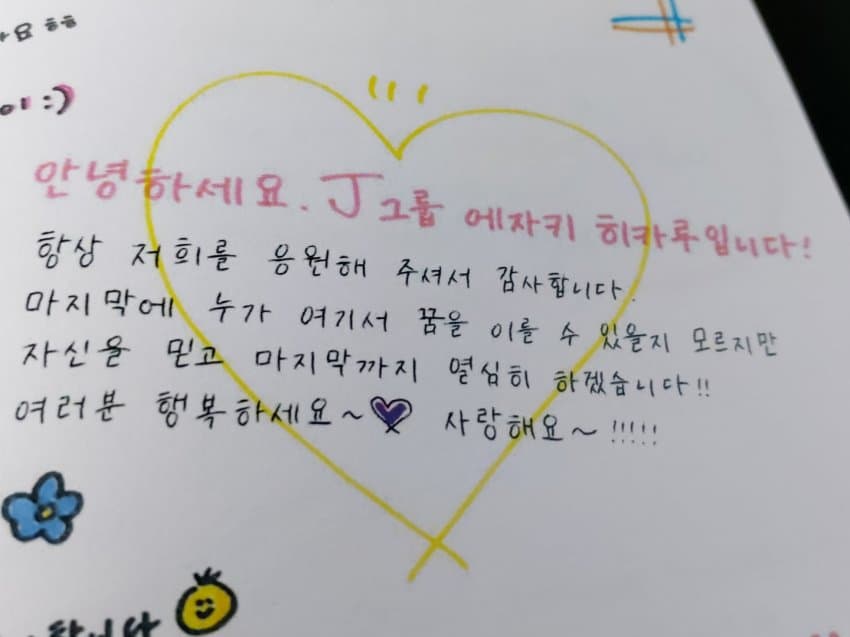 요 ㅎㅎ
이 :)
안녕하세요. J그룹 에자키 히카루입니다!
항상 저희를 응원해 주셔서 감사합니다.
마지막에 누가 여기서 꿈을 이룰 수 있을지 모르지만
자신을 믿고 마지막까지 열심히 하겠습니다!!
여러분 행복하세요~ 사랑해요~ !!!!!